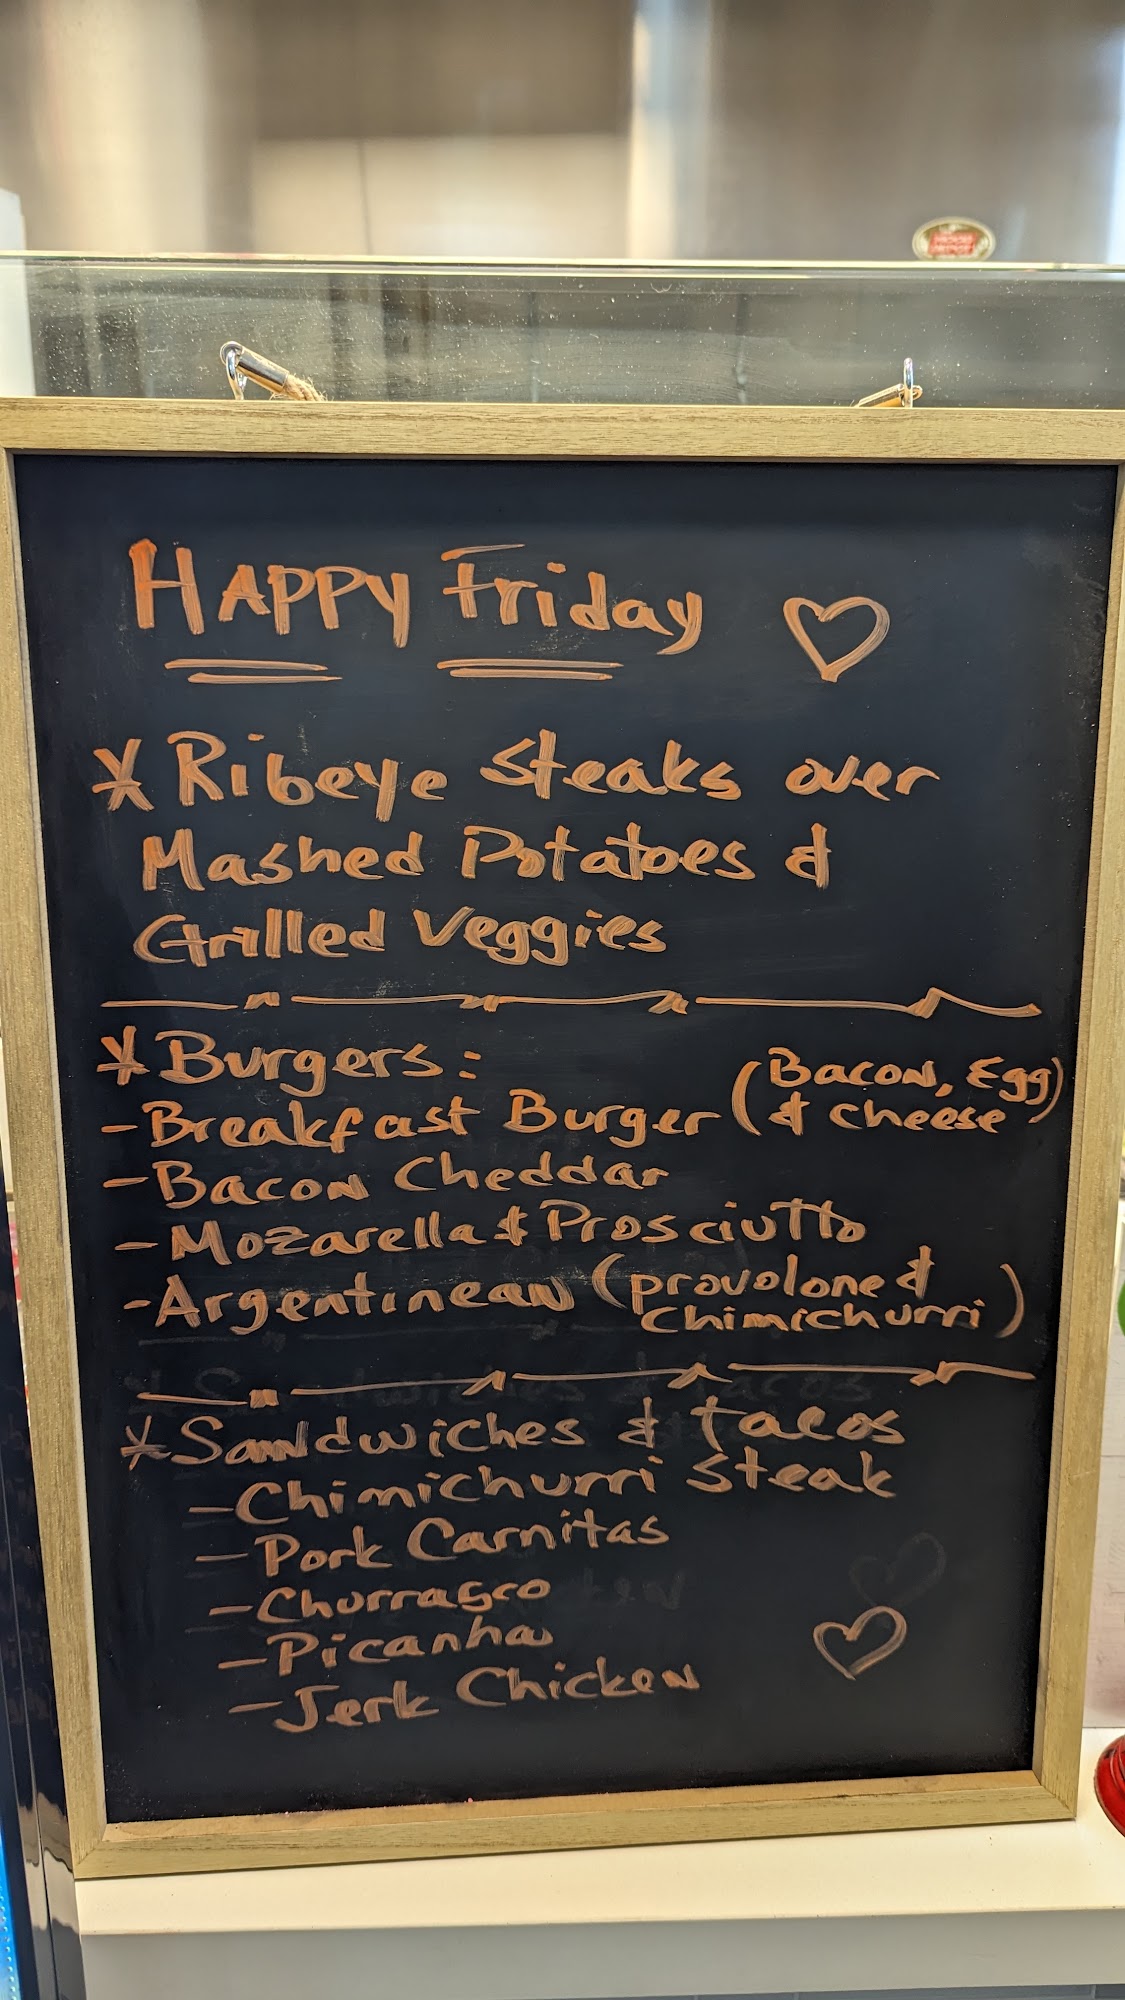 HAPPY Friday
* Ribeye Steaks over
Mashed Potatoes &
Grilled Veggies
* Burgers:
- Breakfast Burger (Bacon, Egg
& cheese)
- Bacon Cheddar
- Mozarella & Prosciutto
- Argentinean (provolone &
Chimichurri)
* Sandwiches & tacos
- Chimichurri Steak
- Pork Carnitas
- Churrasco
- Picanha
- Jerk Chicken